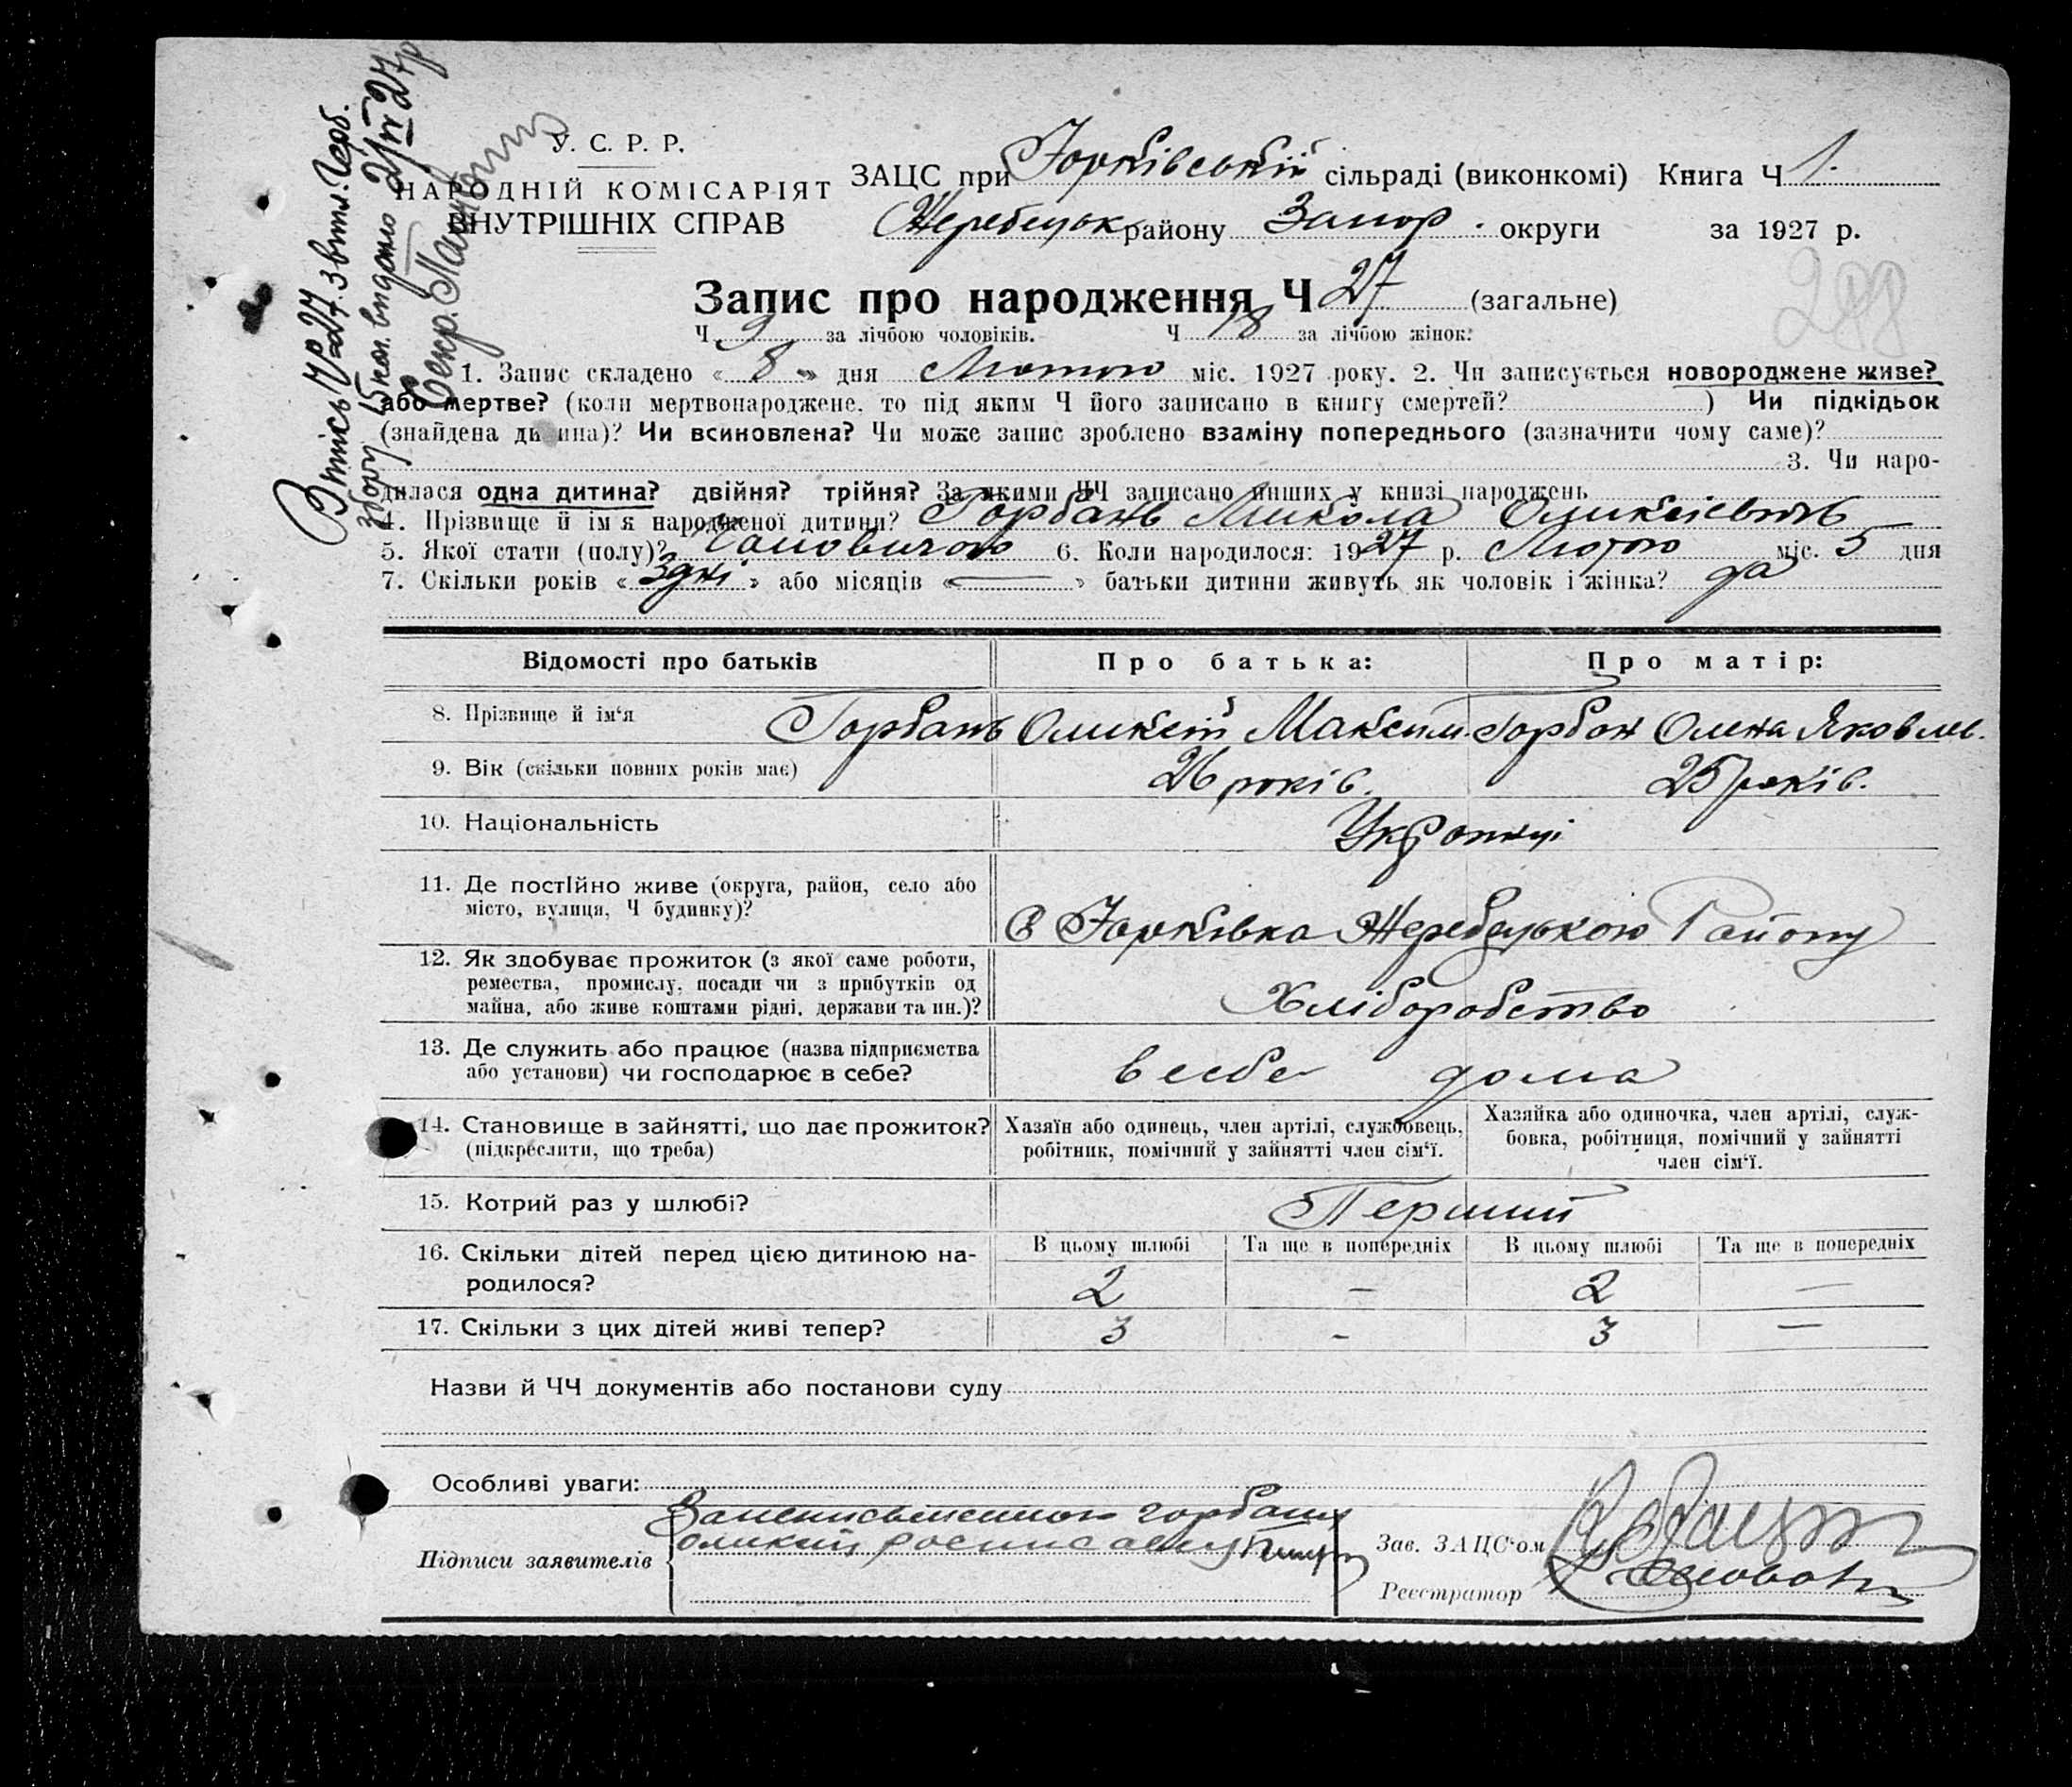 У. С. Р. Р.
НАРОДНІЙ КОМІСАРІЯТ
ВНУТРІШНІХ СПРАВ
ЗАЦС при Юрківській сільраді (виконкомі) Книга Ч 1.
Жеребецьк району Запор. округи за 1927 р.
Запис про народження Ч 27 (загальне)
288
Ч 9 за лічбою чоловіків. Ч 18 за лічбою жінок.
1. Запис складено « 8 » дня Лютого міс. 1927 року. 2. Чи записується новороджене живе?
або мертве? (коли мертвонароджене, то під яким Ч його записано в книгу смертей? ) Чи підкідьок
(знайдена дитина)? Чи всиновлена? Чи може запис зроблено взаміну попереднього (зазначити чому саме)?
3. Чи наро-
дилася одна дитина? двійня? трійня? За якими ЧЧ записано инших у книзі народжень
4. Прізвище й ім'я народженої дитини? Горбань Микола Оликсієвичь
5. Якої стати (полу)? Чоловичого 6. Коли народилося: 1927 р. Лютого міс. 5 дня
7. Скільки років « 3 дні » або місяців « — » батьки дитини живуть як чоловік і жінка? да
Відомості про батьків Про батька: Про матір:
8. Прізвище й ім'я Горбань Оликсій Максим. Горбан Олена Яковлев.
9. Вік (скільки повних років має) 26 років. 25 років.
10. Національність Українці
11. Де постійно живе (округа, район, село або
місто, вулиця, Ч будинку)? С Юрківка Жеребецького Району
12. Як здобуває прожиток (з якої саме роботи,
ремества, промислу, посади чи з прибутків од
майна, або живе коштами рідні, держави та ин.)? Хліборобство
13. Де служить або працює (назва підприємства
або установи) чи господарює в себе? в себе дома
14. Становище в зайнятті, що дає прожиток?
(підкреслити, що треба)
Хазяїн або одинець, член артілі, службовець,
робітник, помічний у зайнятті член сім'ї.
Хазяйка або одиночка, член артілі, служ-
бовка, робітниця, помічний у зайнятті
член сім'ї.
15. Котрий раз у шлюбі? Перший
16. Скільки дітей перед цією дитиною на-
родилося?
В цьому шлюбі Та ще в попередніх В цьому шлюбі Та ще в попередніх
2 — 2 —
17. Скільки з цих дітей живі тепер? 3 - 3 —
Назви й ЧЧ документів або постанови суду
Особливі уваги:
Підписи заявителів
Горбань
Оликсій
Зав. ЗАЦС'ом
Реєстратор